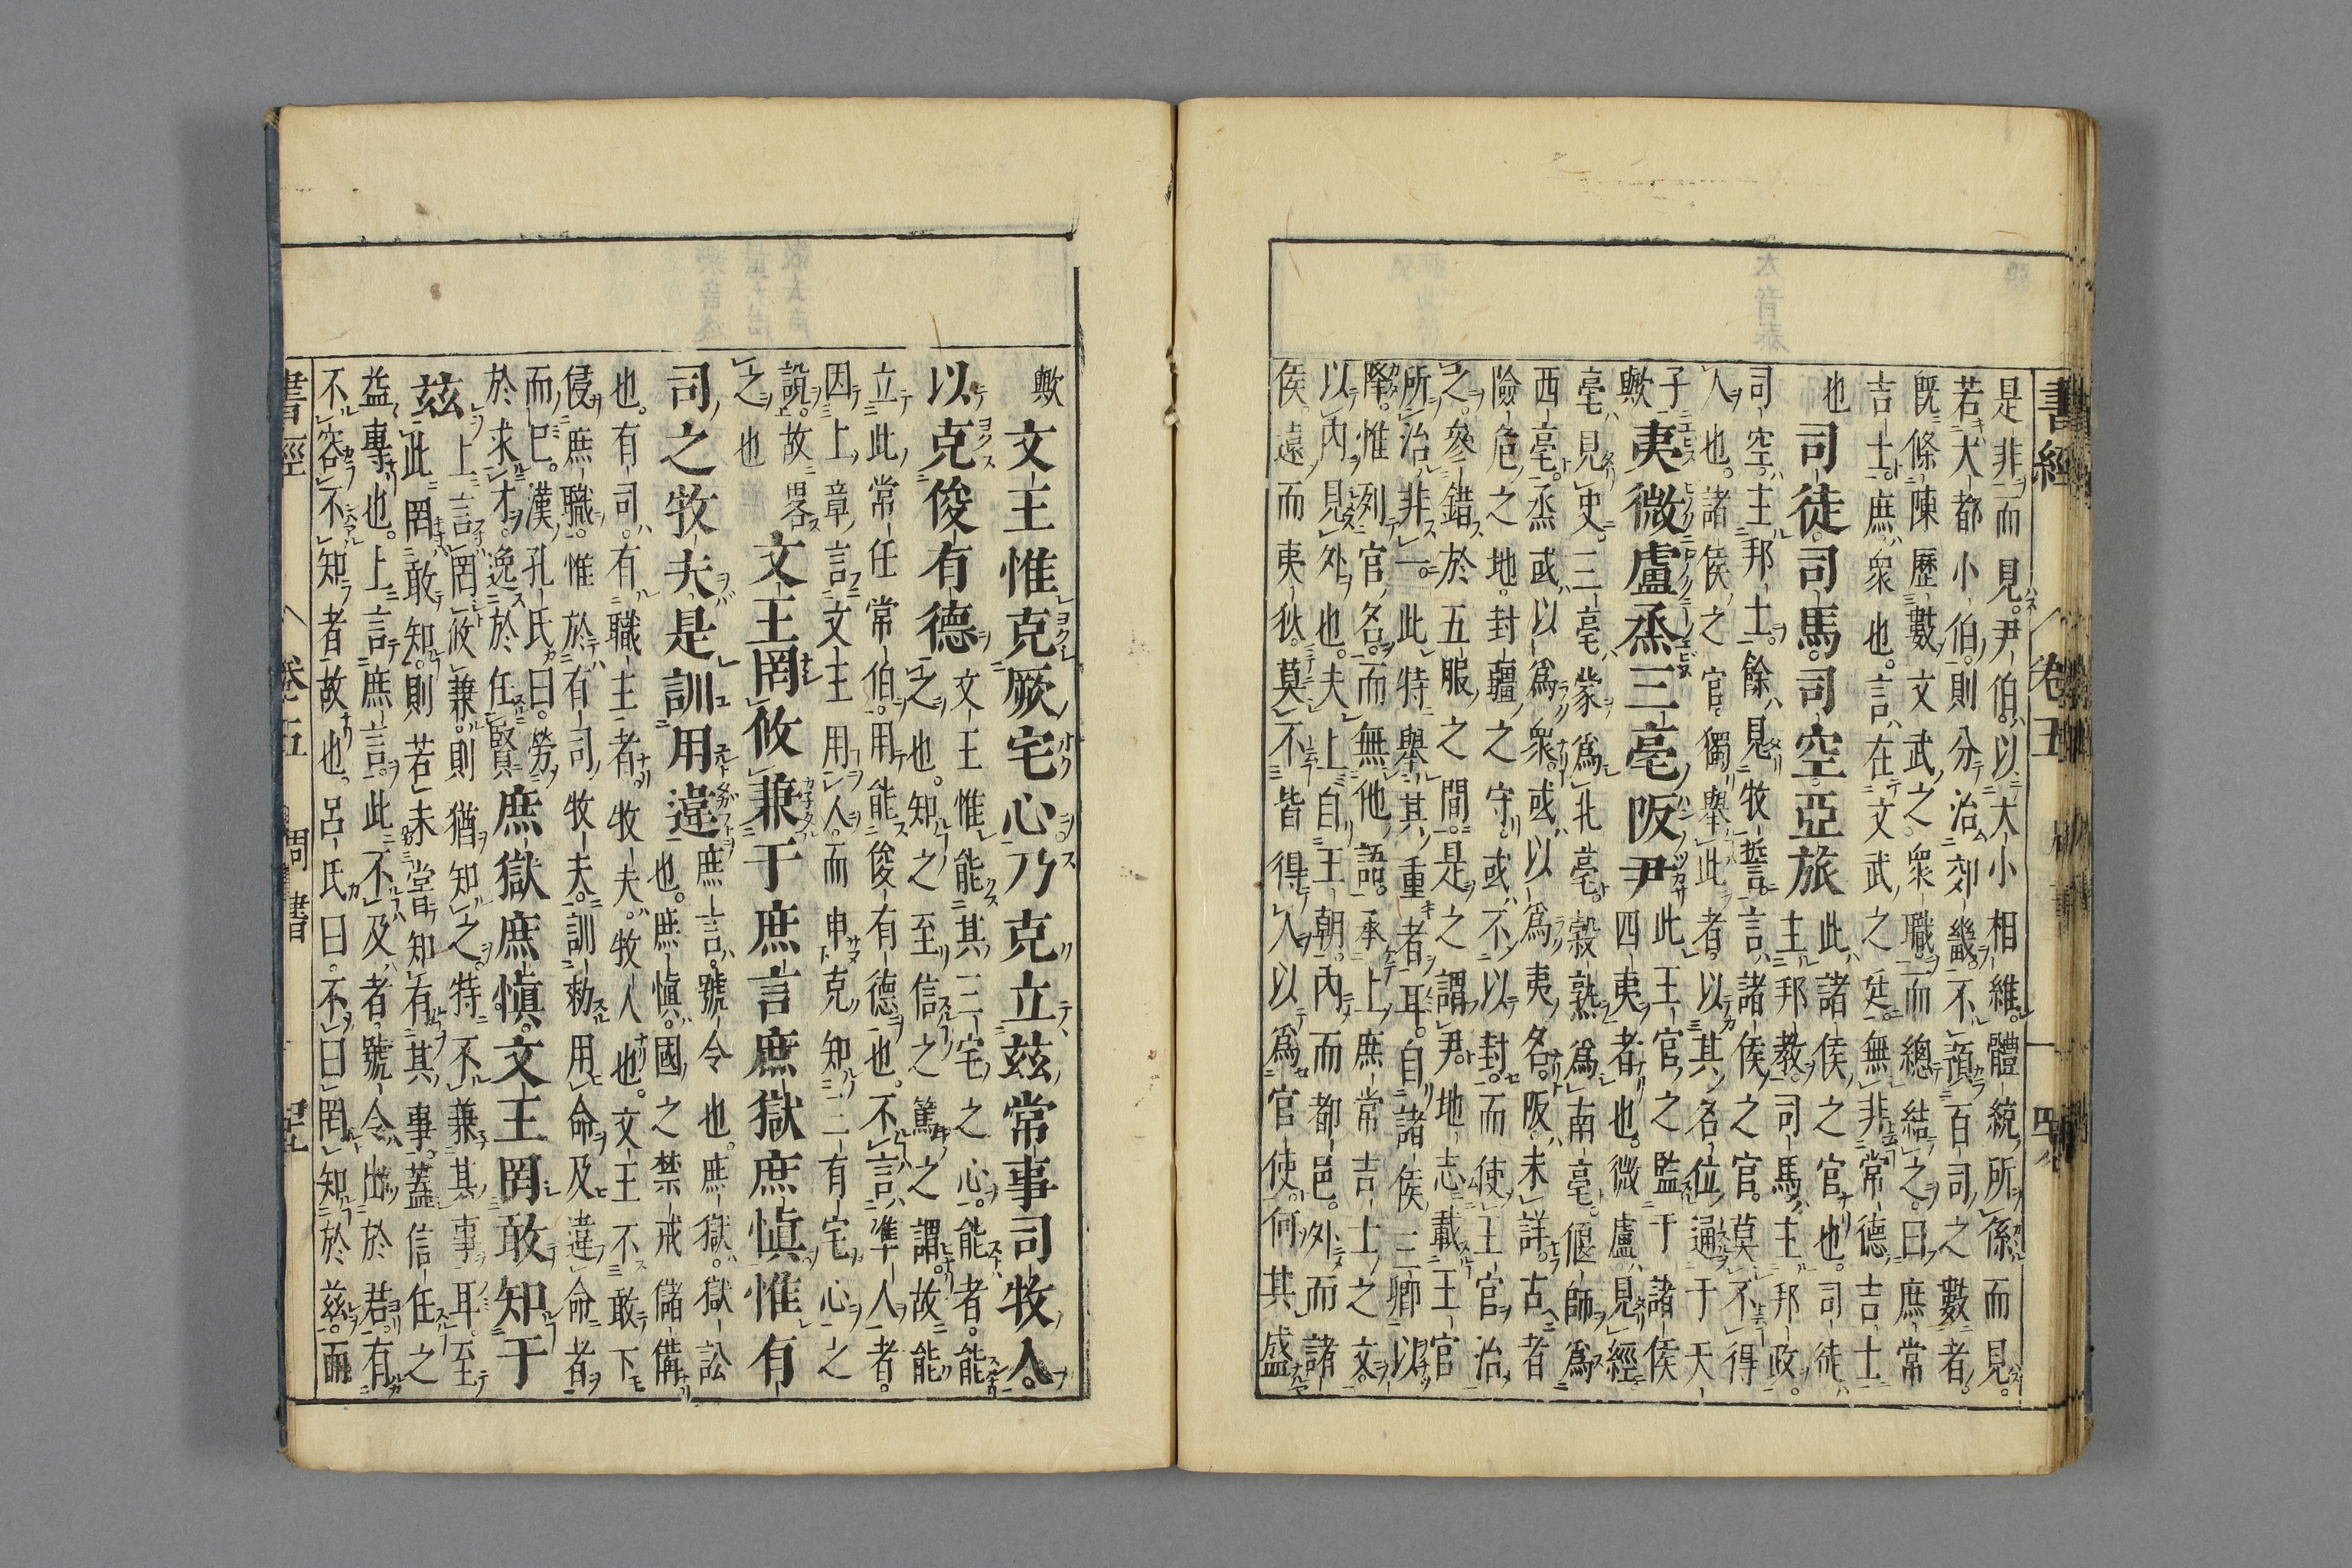 書經 卷五 四
是非而見。尹伯。以大小相維。體統所係而見。
若大都小伯。則分治郊畿。不預百司之數者。
既條陳歷數文武之衆職。而總結之。曰庶常
吉士。庶衆也。言在文武之廷。無非常德吉士
也 司徒司馬司空亞旅 此諸侯之官也。司徒
主邦教。司馬主邦政。
司空主邦土。餘見牧誓。言諸侯之官。莫不得
人也。諸侯之官獨舉此者。以其名位通于天
子歟 夷微盧烝三亳阪尹 此王官之監于諸侯
四夷者也。微盧見經
亳見史。三亳蒙爲北亳。穀熟爲南亳。偃師爲
西亳。烝或以爲衆。或以爲夷名。阪未詳。古者
險危之地。封疆之守。或不以封。而使王官治
之。參錯於五服之間。是之謂尹。地志載王官
所治非一。此特舉其重者耳。自諸侯三卿以
降。惟列官名。而無他語。承上庶常吉士之文。
以內見外也。夫上自王朝。內而都邑。外而諸
侯。遠而夷狄。莫不皆得人以爲官使。何其盛
歟 文王惟克厥宅心乃克立茲常事司牧人
以克俊有德 文王惟能其三宅之心。能者。能
之也。知之至信之篤之謂。故能
立此常任常伯。用能俊有德也。不言準人者。
因上章言文王用人。而申克知三有宅心之
說。故畧
之也 文王罔攸兼于庶言庶獄庶慎惟有
司之牧夫是訓用違 庶言。號令也。庶獄。獄訟
也。庶慎。國之禁戒儲備
也。有司。有職主者。牧夫。牧人也。文王不敢下
侵庶職。惟於有司牧夫。訓勑用命及違命者
而已。漢孔氏曰。勞
於求才。逸於任賢 庶獄庶慎。文王罔敢知于
茲 上言罔攸兼。則猶知之。特不兼其事耳。至
此罔敢知。則若未嘗知有其事。蓋信任之
益專也。上言庶言。此不及者。號令出於君。有
不容不知者故也。呂氏曰。不曰罔知於茲。而
書經 卷五 周書